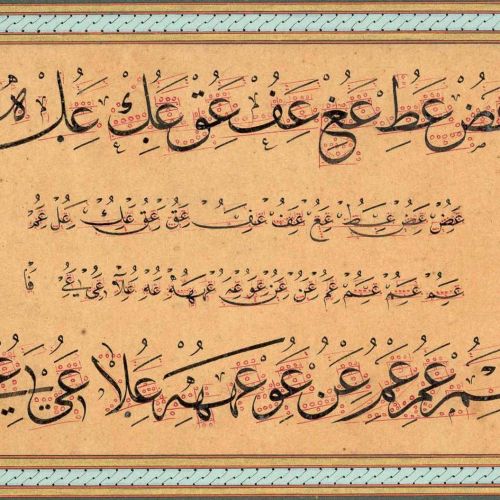 عض عط عع عف عق عك عل
عض عض عط عع عف عف عق عق عك عل عم
عم عم عم عم عن عن عو عه عهه عه علا عى عے فا
عم عم عن عو عهه علا عى